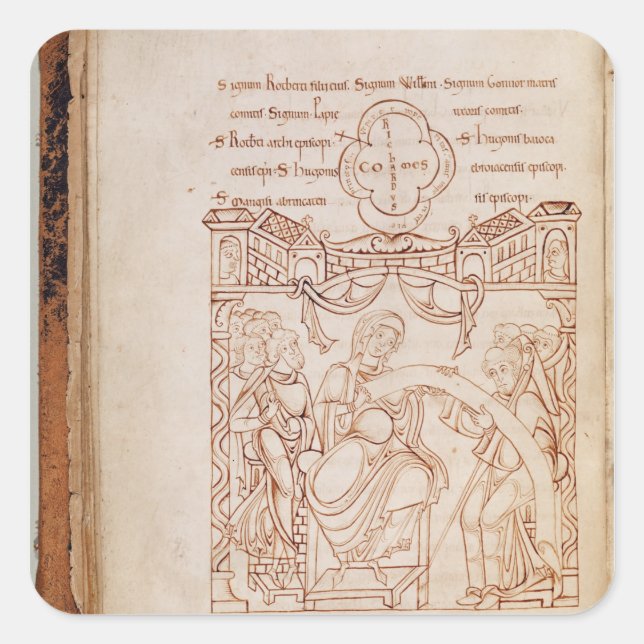 Signum Rotberti filii eius. Signum Willmi. Signum Gonnor matris
comitis. Signum. Papie uxoris comitis.
S Rotb̄ti archi episcopi. S Hugonis baioca
censis ep̄i. S Hugonis ebroiacensis episcopi.
S Maugisi abrincaten sis episcopi.
RICHARDUS
COMES